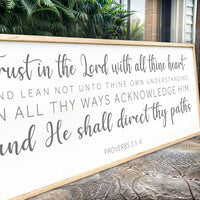 Trust in the Lord with all thine heart
AND LEAN NOT UNTO THINE OWN UNDERSTANDING.
IN ALL THY WAYS ACKNOWLEDGE HIM,
and He shall direct thy paths
PROVERBS 3:5-6